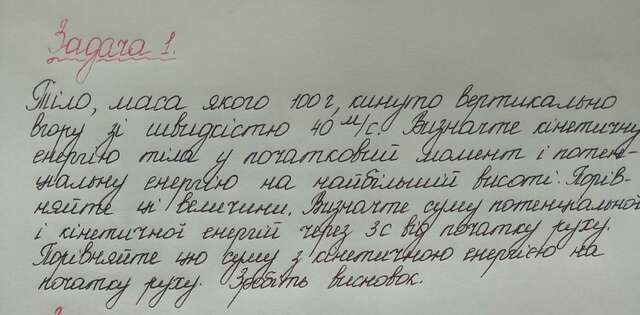 Задача 1.
Тіло, маса якого 100г, кинуто вертикально
вгору зі швидкістю 40 м/с. Визначте кінетичну
енергію тіла у початковий момент і потен-
ціальну енергію на найбільшій висоті. Порів-
няйте ці величини. Визначте суму потенціальної
і кінетичної енергій через 3с від початку руху.
Порівняйте цю суму з кінетичною енергією на
початку руху. Зробіть висновок.